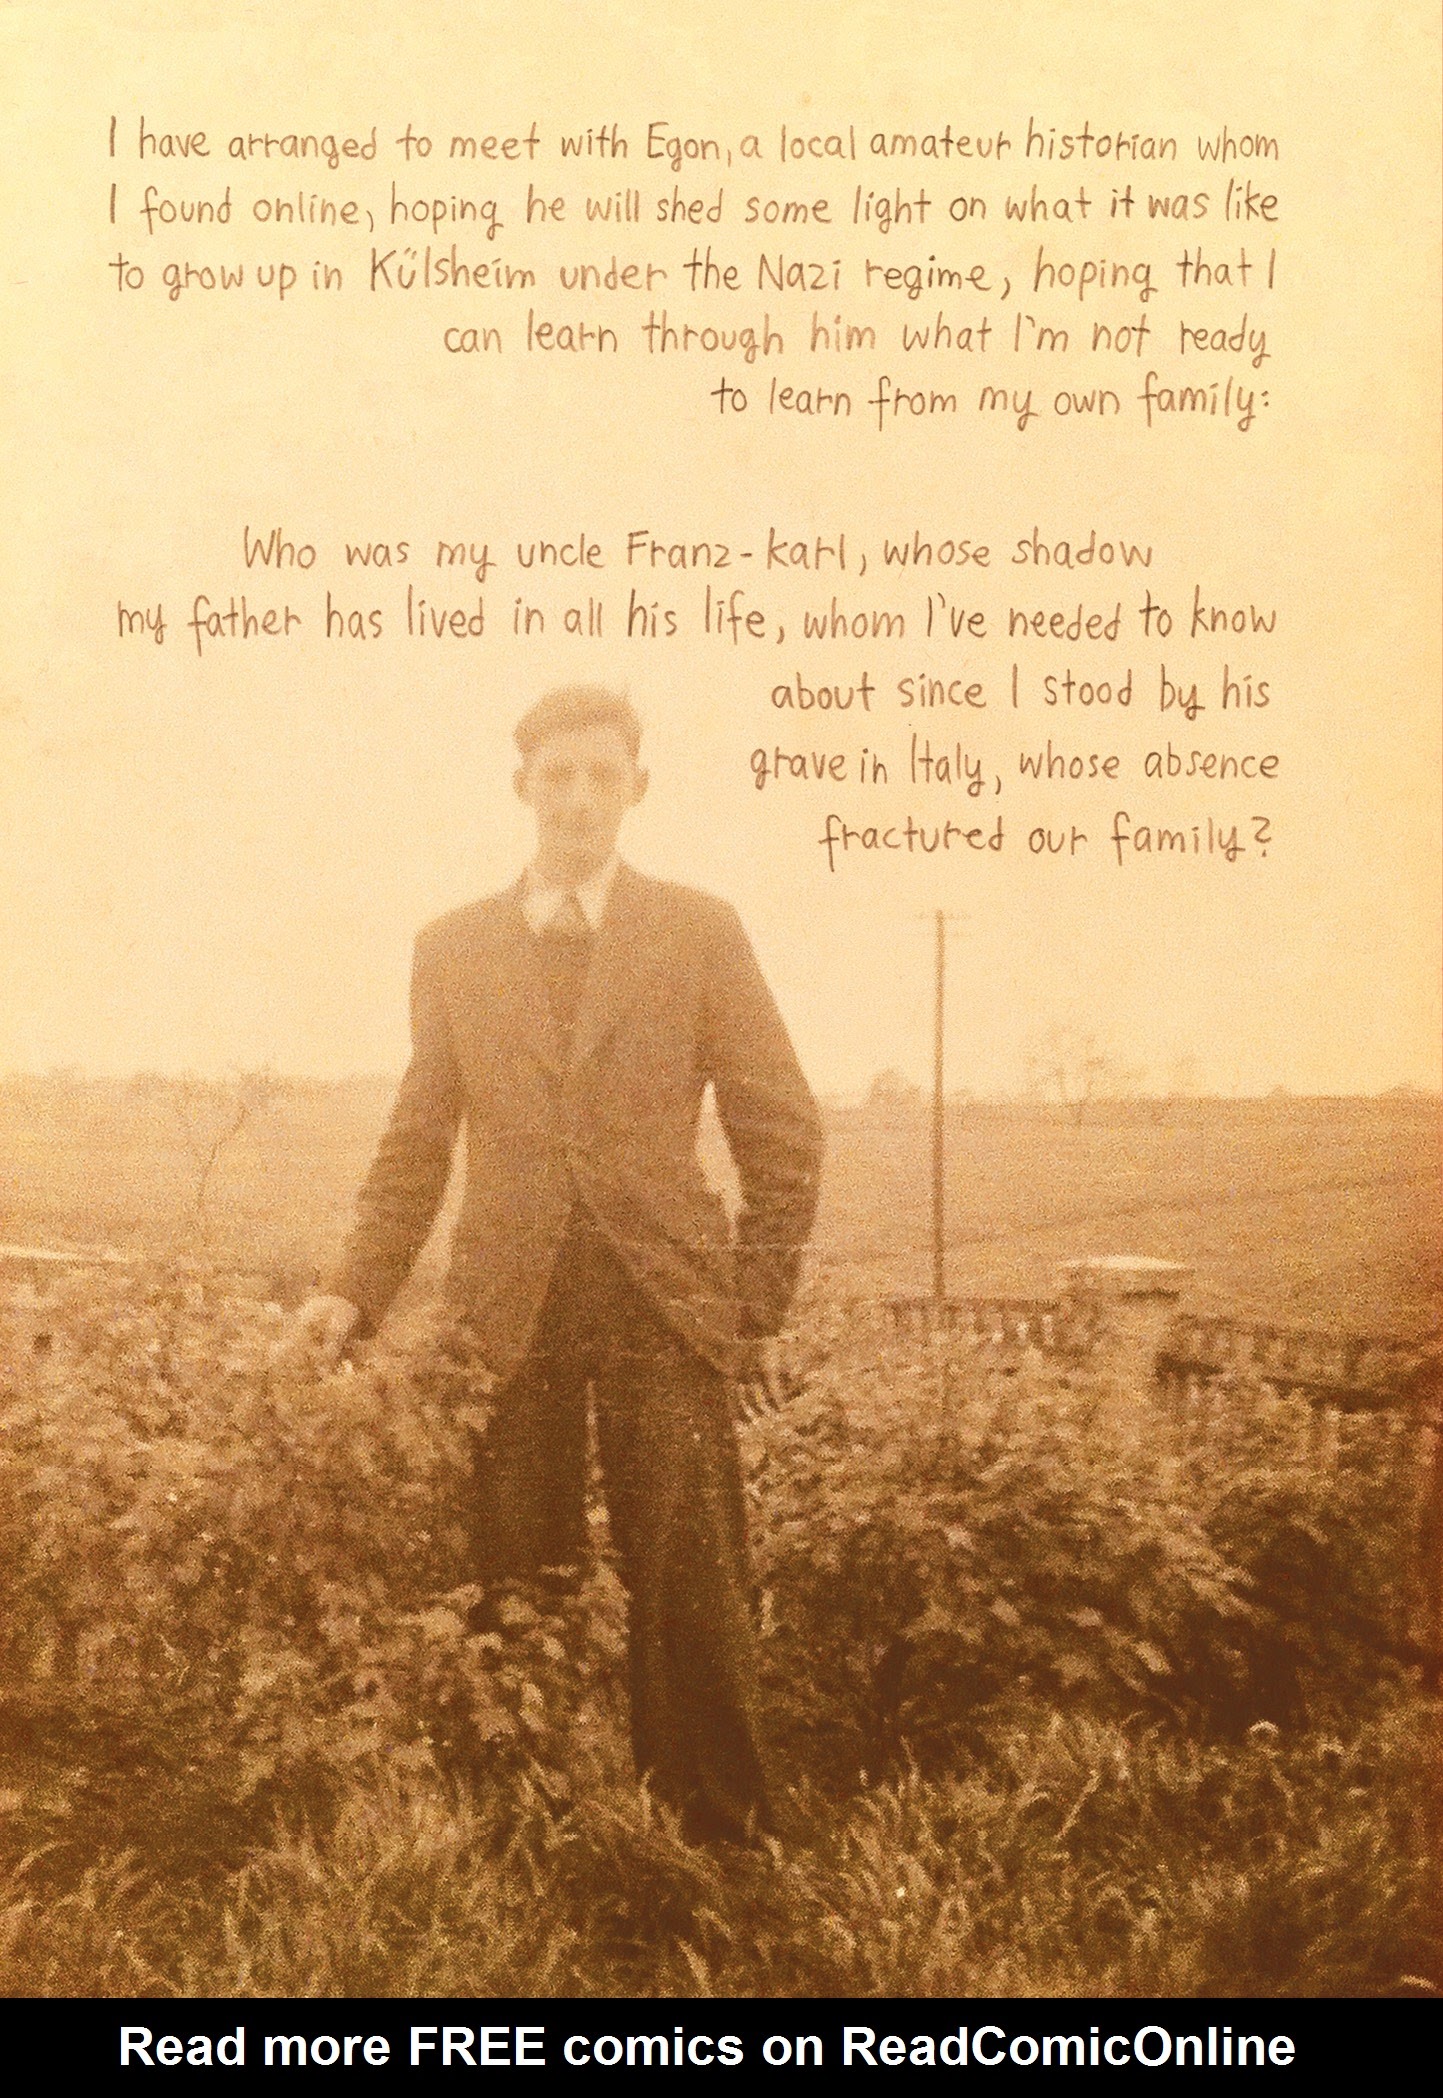 I have arranged to meet with Egon, a local amateur historian whom
I found online, hoping he will shed some light on what it was like
to grow up in Külsheim under the Nazi regime, hoping that I
can learn through him what I'm not ready
to learn from my own family:
Who was my uncle Franz-Karl, whose shadow
my father has lived in all his life, whom I've needed to know
about since I stood by his
grave in Italy, whose absence
fractured our family?
Read more FREE comics on ReadComicOnline